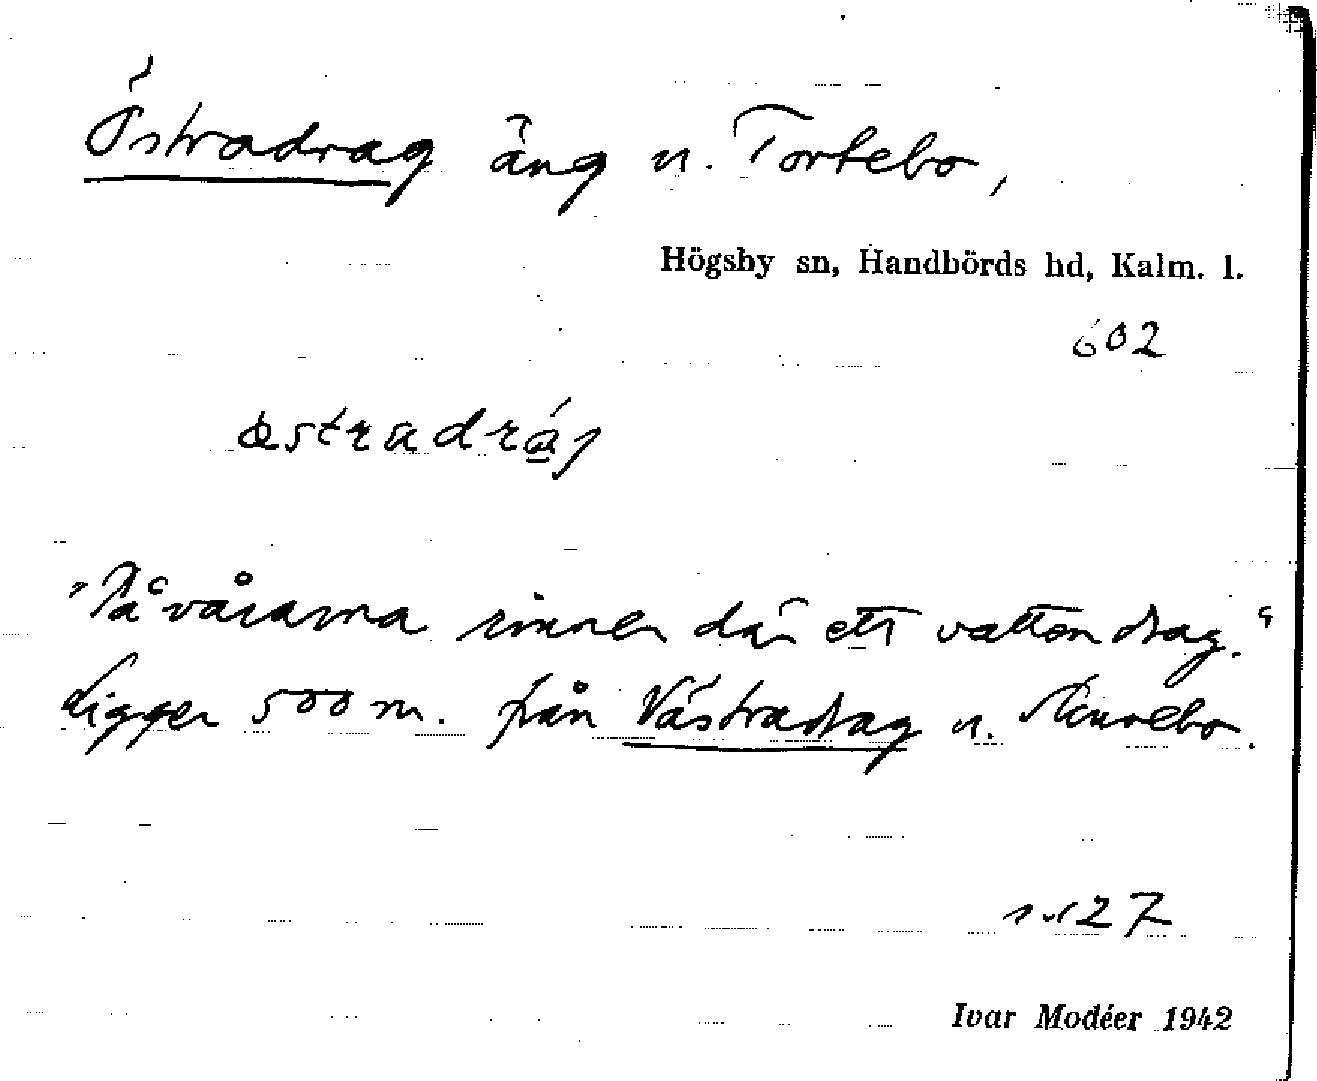 Östradrag äng u. Tortebo,
Högsby sn, Handbörds hd, Kalm. l.
602
"På vårarna rinner där ett vattendrag."
Ligger 500 m. från Västradrag u.
27
Ivar Modéer 1942